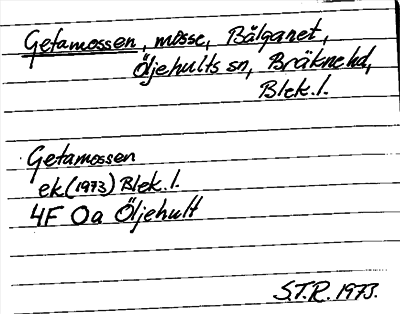 Getamossen, mosse, Bålganet,
Öljehults sn, Bräknehd,
Blek. l.
Getamossen
ek. (1973) Blek. l.
4F 0a Öljehult
S.T.R. 1973.